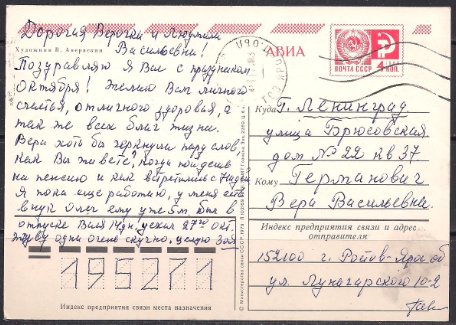 Дорогие Верочка и Людмила
Художник В. Аверкиев
Васильевна!
Поздравляю я Вас с праздником
Октября! Желаю Вам личного
счастья, отличного здоровья, а
так же всех благ жизни.
Вера хоть бы черкнула пару слов
как Вы живёте, когда пойдешь
на пенсию и как встретились с Надей
Я пока еще работаю, у меня есть
внук Олег ему уже был в
отпуске Валя уехал 27го окт.
живу одна очень скучно, целую Зоя
195271
Индекс предприятия связи места назначения
АВИА
ПОЧТА СССР
4 КОП
Куда г. Ленинград
улица Брюсовская
дом № 22 кв 37
Кому Германович
Вера Васильевна
Индекс предприятия связи и адрес
отправителя
152100 г. Ростов-Яросл об
ул. Луначарского 10-2